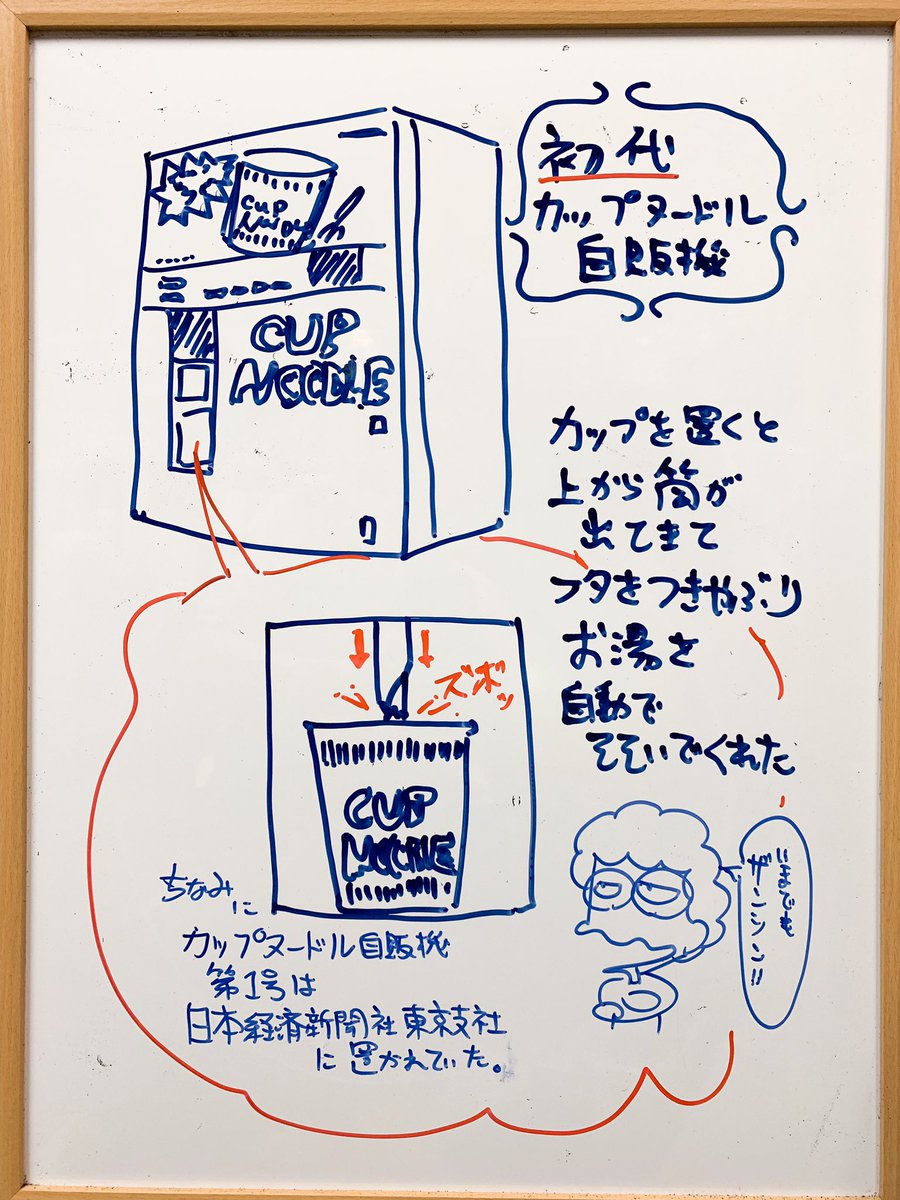 初代
カップヌードル
自販機
CUP
CUP
NOODLE
カップを置くと
上から筒が
出てきて
フタをつきやぶり
お湯を
自動で
そそいでくれた
ズボッ
CUP
NOODLE
ちなみに
カップヌードル自販機
第1号は
日本経済新聞社東京支社
に置かれていた。